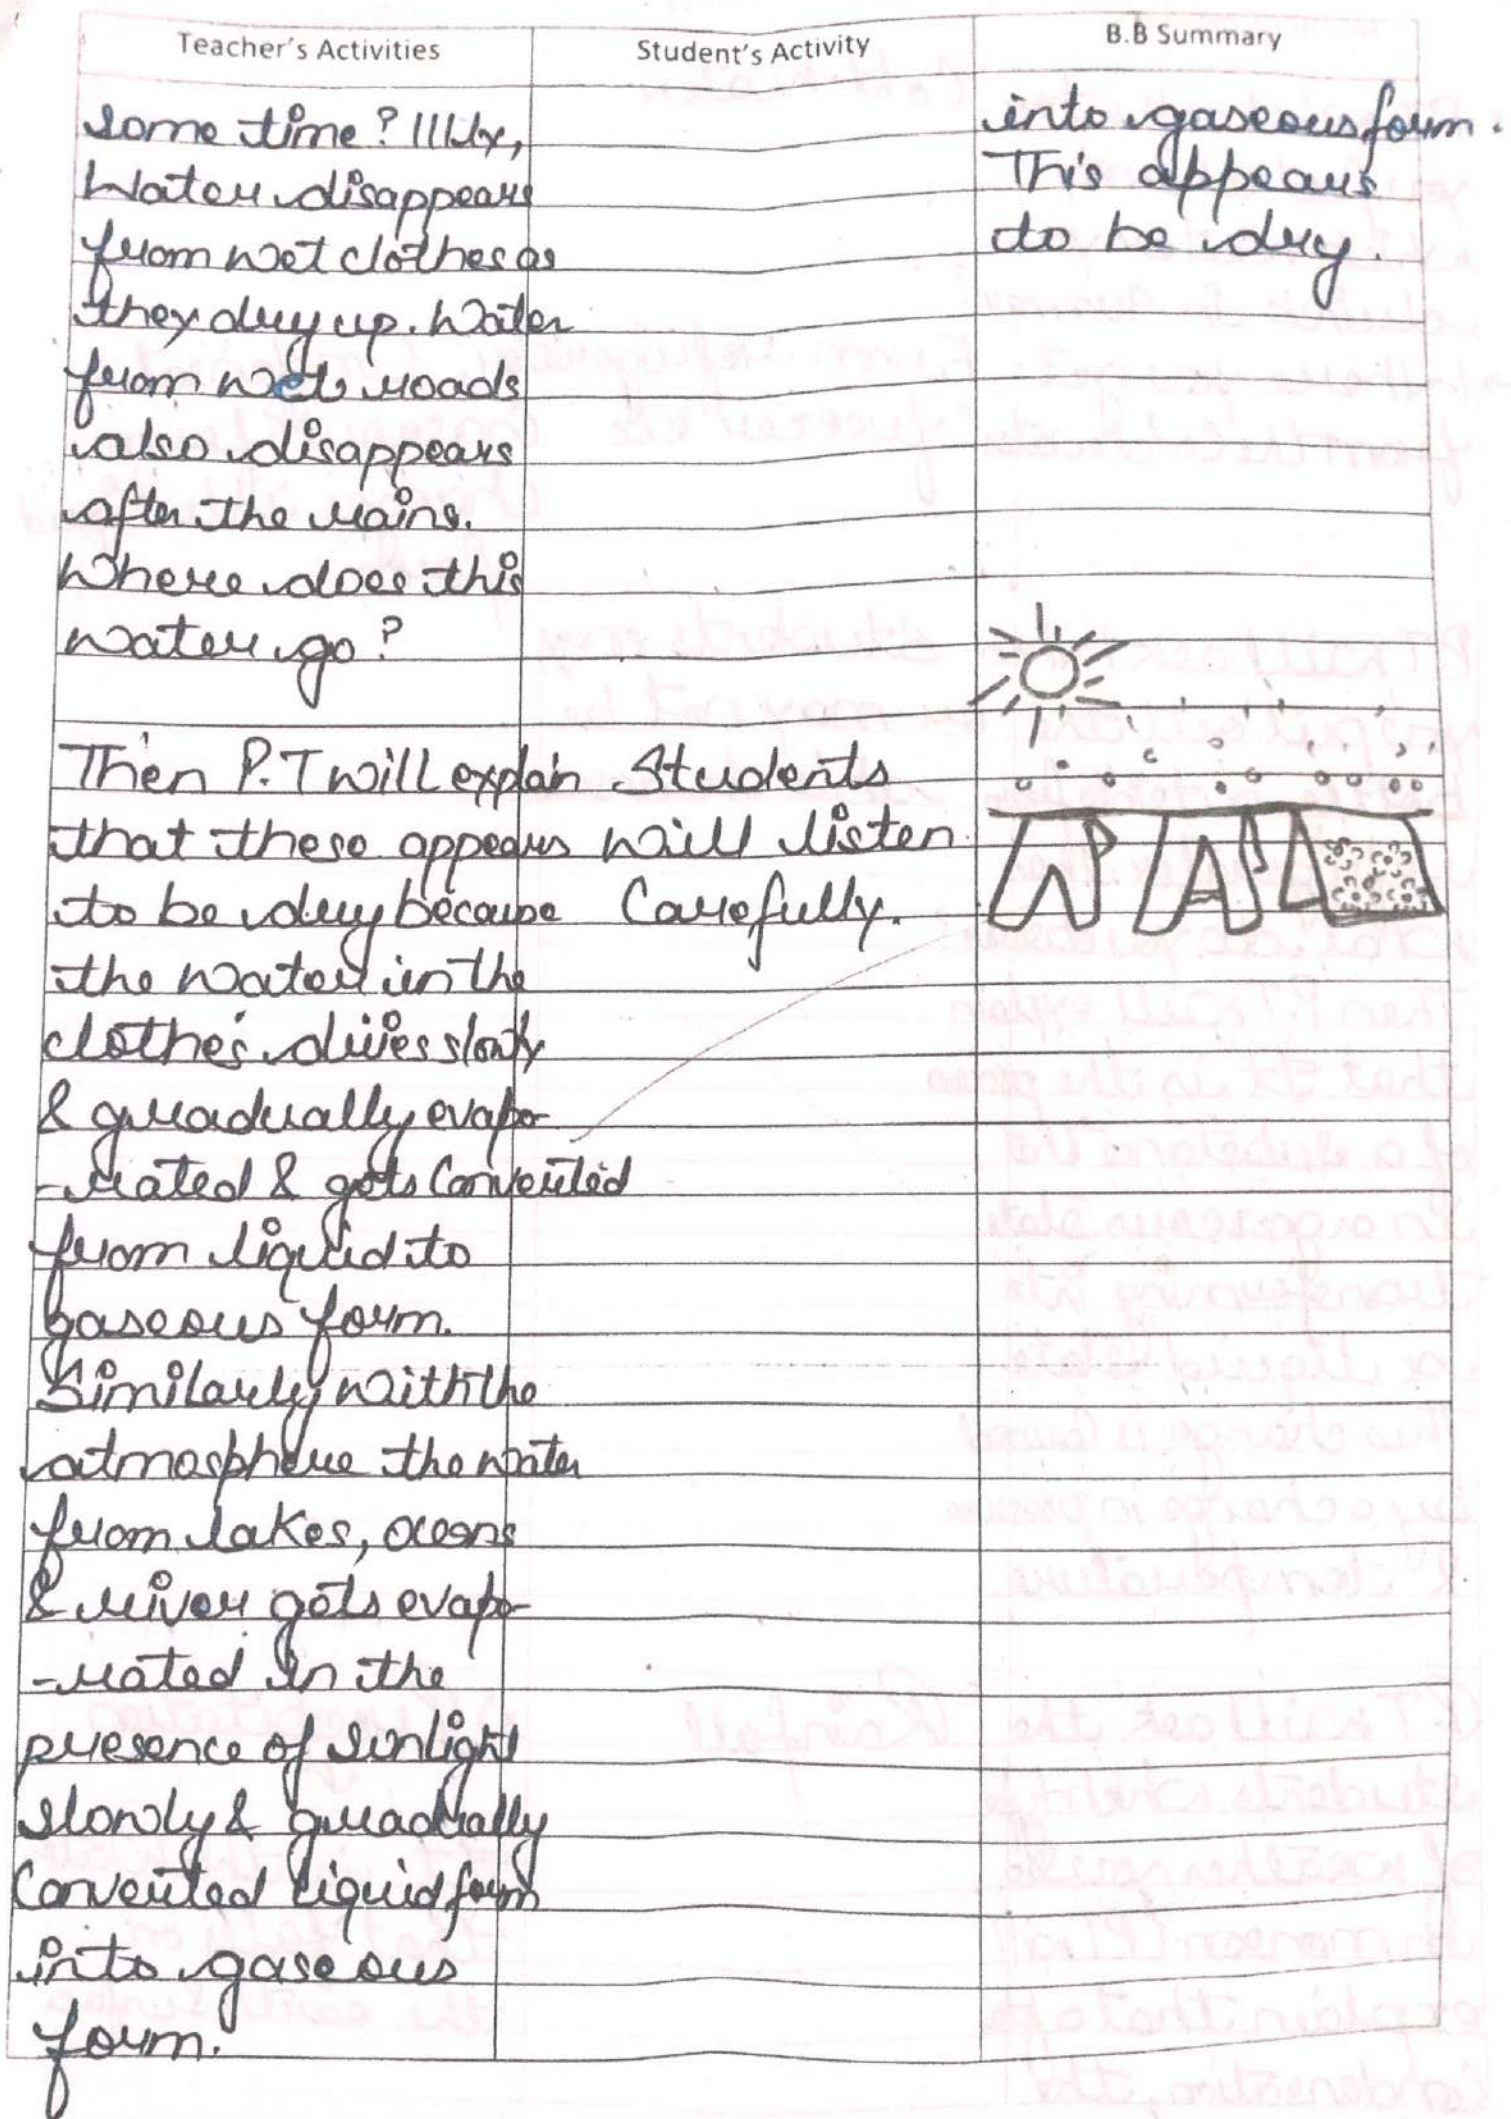 Teacher's Activities
Student's Activity
B.B Summary
some time? Illly,
Water disappears
from wet clothes as
they dry up. Water
from wet roads
also disappears
after the rains.
Where does this
water go?
Then P.T will explain
that these appears
to be dry because
the water in the
clothes dries slowly
& gradually evapo-
-rated & gets converted
from liquid to
gaseous form.
Similarly with the
atmosphere the water
from lakes, oceans
& river gets evapo-
-rated in the
presence of sunlight
slowly & gradually
Converted liquid form
into gaseous
form.
Students
will listen
Carefully.
into gaseous form.
This appears
to be dry.